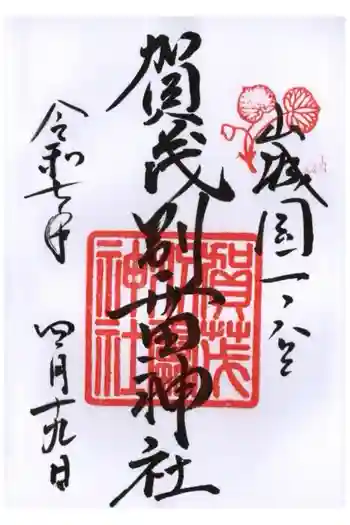 山城國一之宮
賀茂別雷神社
賀茂別雷神社
令和七年
四月十九日